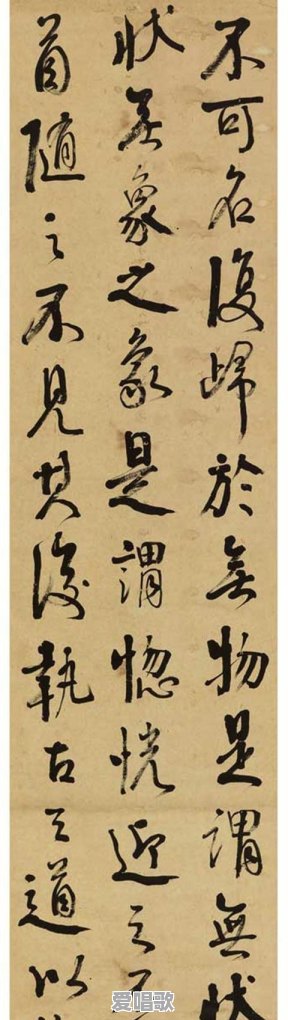 不可名復歸於無物是謂無狀
狀無象之象是謂惚恍迎之不
首隨之不見其後執古之道以
爱唱歌